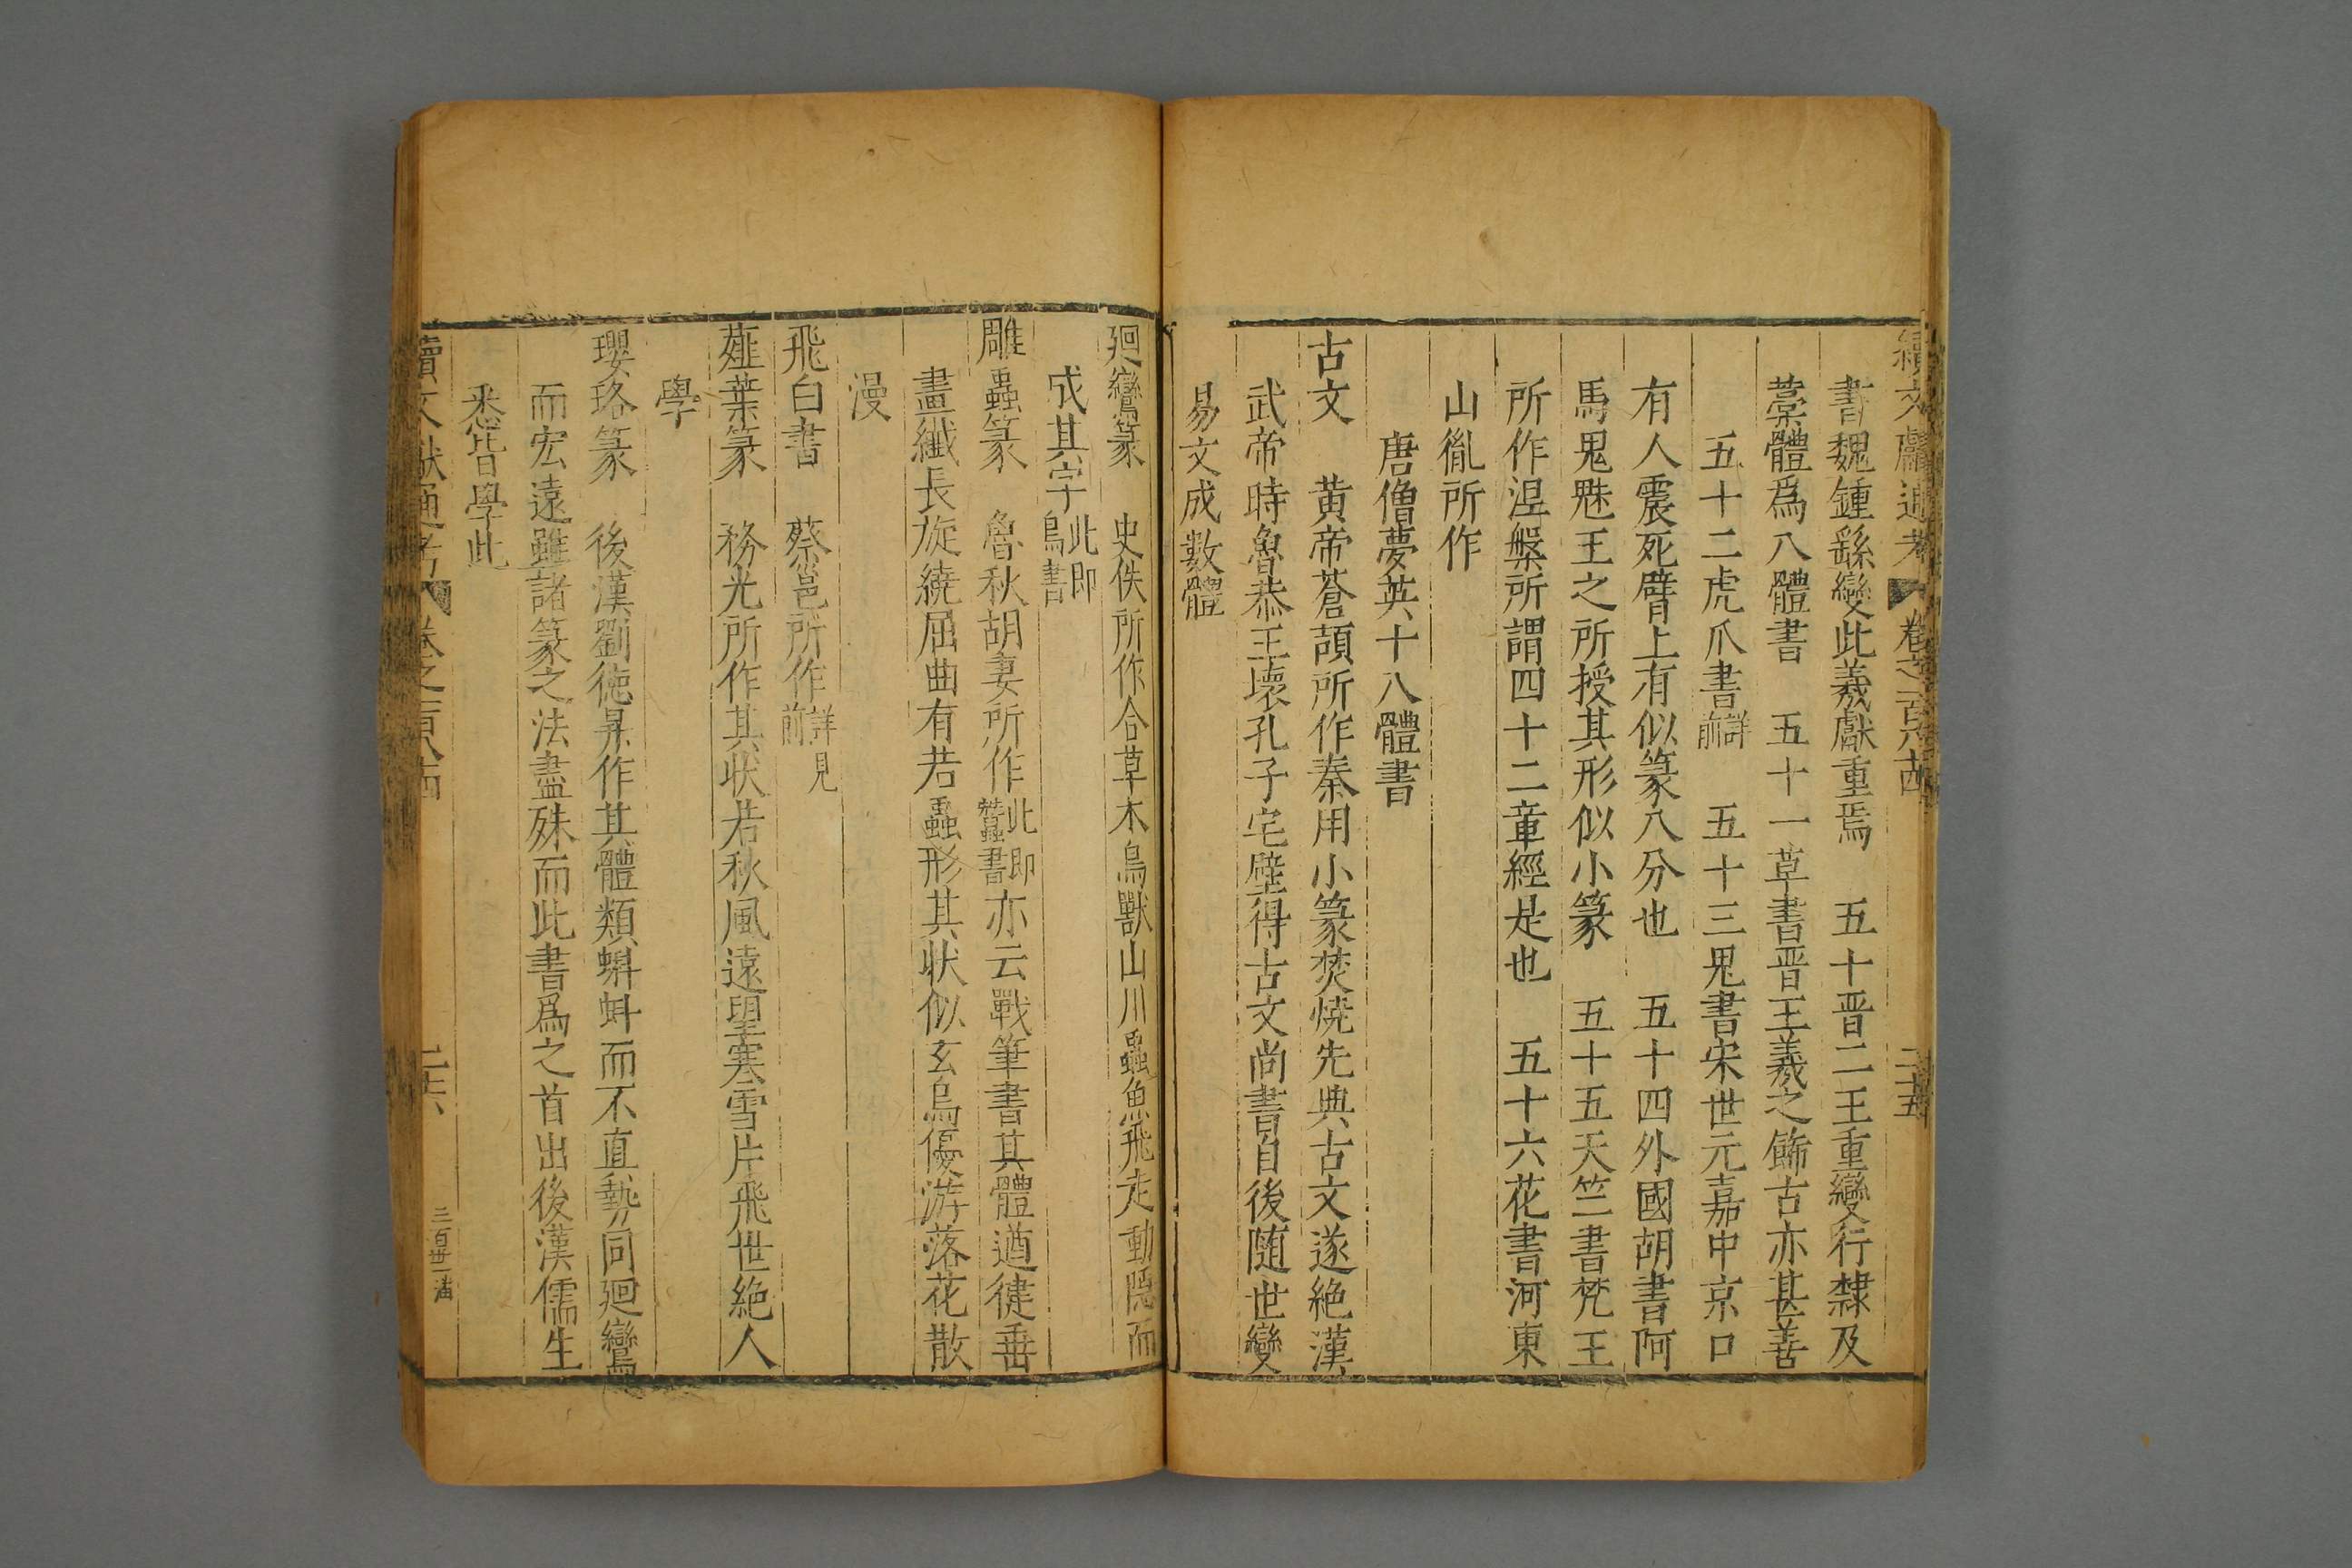 續文獻通考 卷之一百八十四 二十五
書魏鍾繇變此羲獻重焉 五十晋二王重變行隸及
藁體爲八體書 五十一草書晋王羲之飾古亦甚善
五十二虎爪書詳前 五十三鬼書宋世元嘉中京口
有人震死臂上有似篆八分也 五十四外國胡書阿
馬鬼魅王之所授其形似小篆 五十五天竺書梵王
所作涅槃所謂四十二章經是也 五十六花書河東
山胤所作
唐僧夢英十八體書
古文 黄帝蒼頡所作秦用小篆焚燒先典古文遂絶漢
武帝時魯恭王壞孔子宅壁得古文尚書自後随世變
易文成數體
廻鸞篆 史佚所作合草木鳥獸山川蟲魚飛走動隱而
成其字此即鳥書
雕蟲篆 魯秋胡妻所作此即蠶書亦云戰筆書其體遒健垂
畫纎長旋繞屈曲有若蟲形其狀似玄鳥優游落花散
漫
飛白書 蔡邕所作詳見前
薤葉篆 務光所作其狀若秋風遠望寒雪片飛世絶人
學
瓔珞篆 後漢劉德昇作其體類蝌蚪而不直勢同廻鸞
而宏遠雖諸篆之法盡殊而此書爲之首出後漢儒生
悉皆學此
續文獻通考 卷之一百八十四 二十六